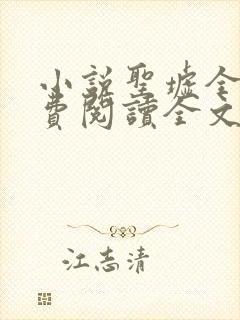 小説聖墟全
費閱讀全文
江志清